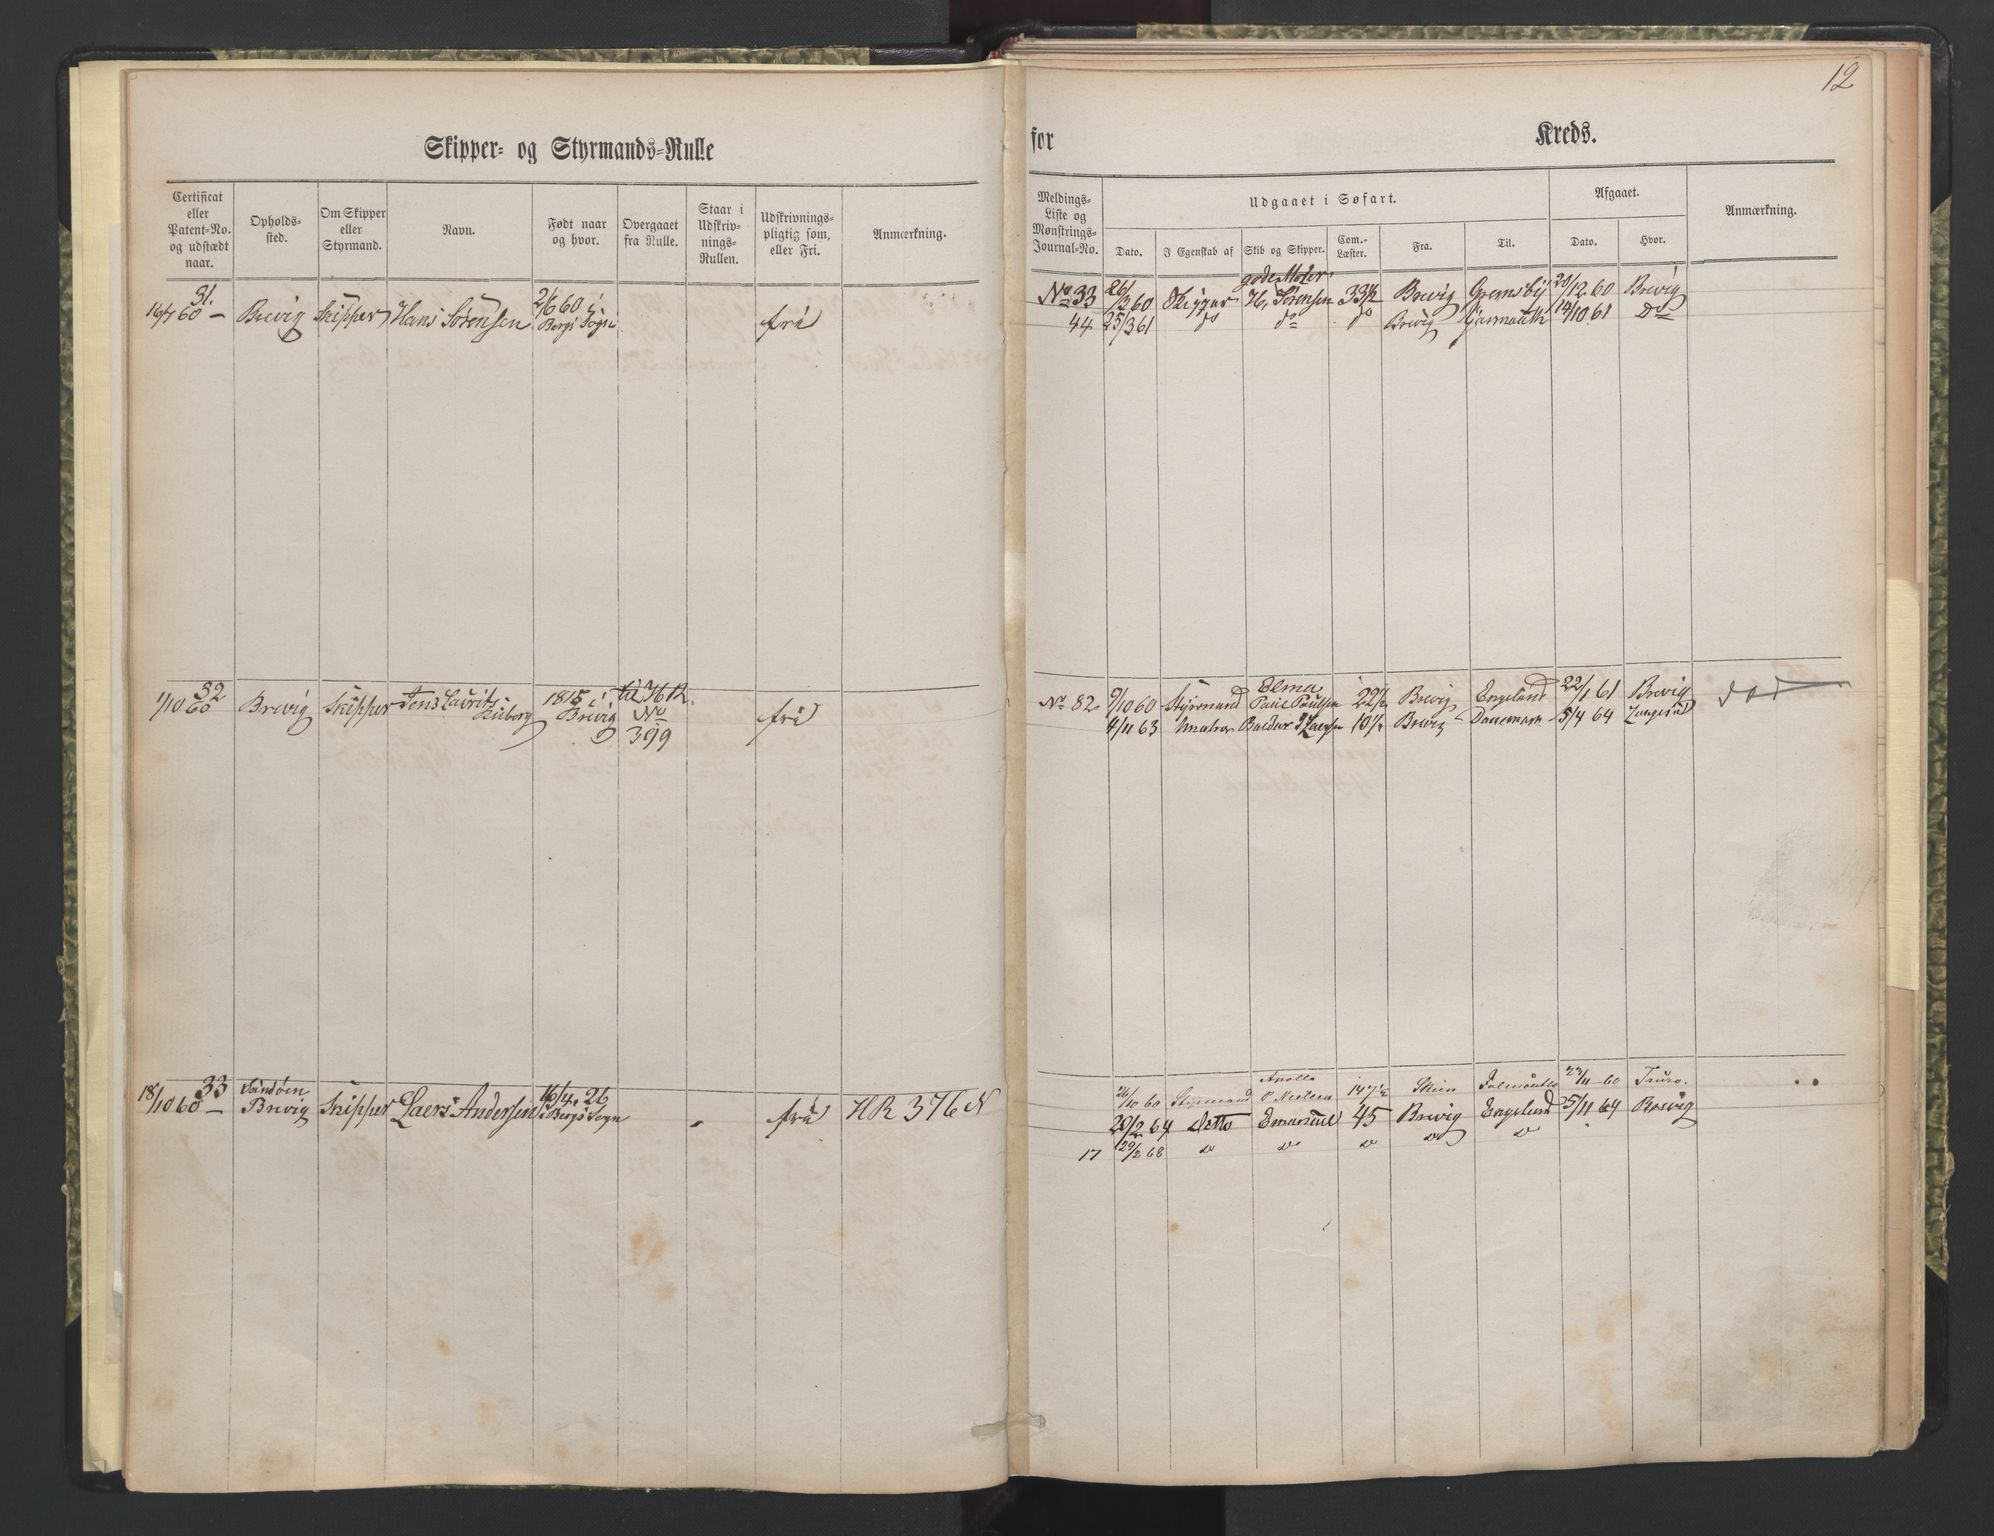 12
Skipper- og Styrmands-Rulle
for Kreds.
Certificat eller Patent-No. og udstædt naar.
Opholds-sted.
Om Skipper eller Styrmand.
Navn.
Født naar og hvor.
Overgaaet fra Rulle.
Staar i Udskriv-nings-Rullen.
Udskrivnings-pligtig som, eller Fri.
Anmærkning.
Meldings-Liste og Mønstrings-Journal-No.
Udgaaet i Søfart.
Dato.
I Egenskab af
Skib og Skipper.
Com.-Læster.
Fra:
Til.
Afgaaet.
Dato.
Hvor.
Anmærkning.
31.
16/7 60 — Brevig Skipper Hans Sørensen 2/6 60 i Bergs Sogn fri
No 33 26/3 60 gode Moder H. Sørensen 33 1/2 Brevig Grimsby 20/12 60 Brevig
44 25/3 61 do do do Brevig 14/10 61 Do
32
1/10 60 Brevig Skipper Jens Laurits 1815 i Brevig til H R. No 399 fri
No 82 9/10 60 Styrmand Elma Paul Paulsen 22 1/2 Brevig Engeland 22/1 61 Brevig død
4/11 63 Baldur 10 1/2 Brevig Danemark 5/4 64 Langesund
33
18/10 60 — Sandøen Brevig Skipper Laers Andersen 16/4 26 i Bergs Sogn fri HR 376 N
26/10 60 Styrmand Apollo P Nielsen 147 1/2 Skien 23/11 60 Truro.
20/2 64 Detto Emanuel 45 Brevig Engeland 25/11 64 Brevig
17 29/2 68 do do do do do